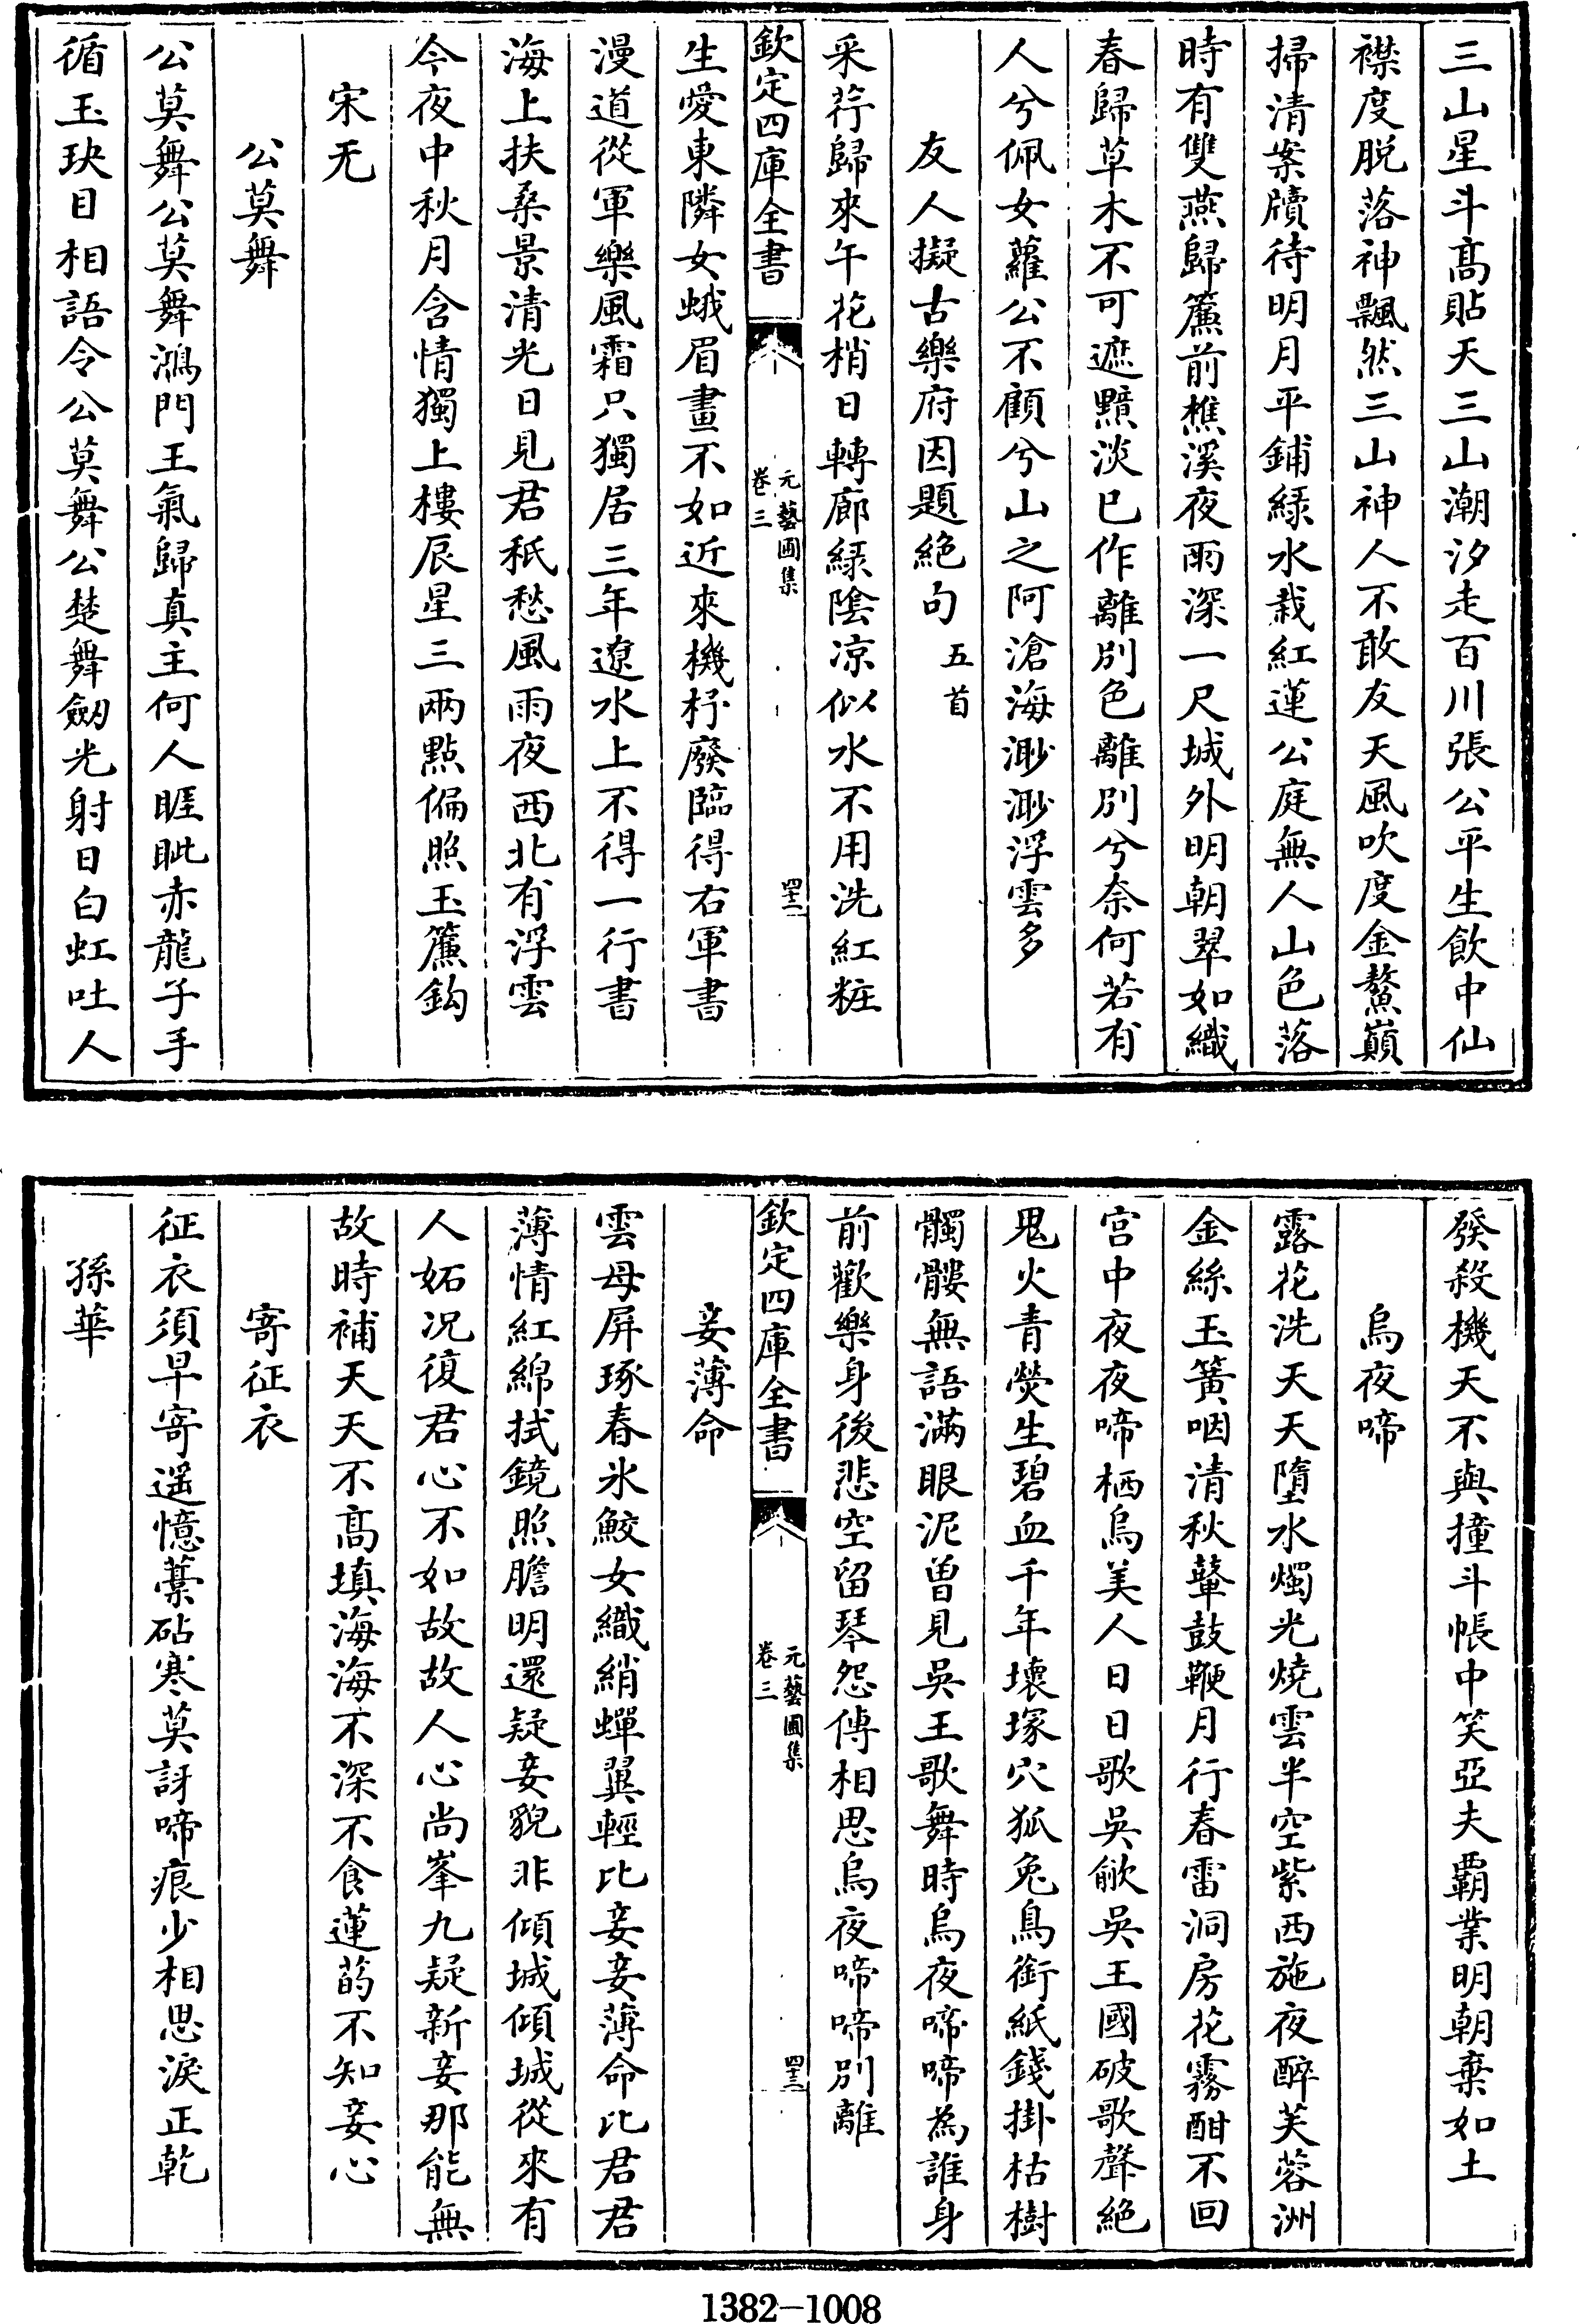 三山星斗髙貼天三山潮汐走百川張公平生飲中仙
襟度脱落神飄然三山神人不敢友天風吹度金鰲巔
掃清案牘待明月平鋪緑水栽紅蓮公庭無人山色落
時有雙燕歸簾前樵溪夜雨深一尺城外明朝翠如織
春歸草木不可遮黯淡已作離别色離别兮奈何若有
人兮佩女蘿公不顧兮山之阿滄海渺渺浮雲多
友人擬古樂府因題絶句五首
采荇歸來午花梢日轉廊緑陰凉似水不用洗紅粧
欽定四庫全書
元藝圃集
卷三
四十二
生愛東隣女蛾眉畫不如近來機杼廢臨得右軍書
漫道從軍樂風霜只獨居三年遼水上不得一行書
海上扶桑景清光日見君秖愁風雨夜西北有浮雲
今夜中秋月含情獨上樓辰星三兩點偏照玉簾鈎
宋无
公莫舞
公莫舞公莫舞鴻門王氣歸真主何人睚眦赤龍子手
循玉玦目相語令公莫舞公楚舞劒光射日白虹吐人
發殺機天不與撞斗帳中笑亞夫覇業明朝棄如土
烏夜啼
露花洗天天墮水燭光燒雲半空紫西施夜醉芙蓉洲
金絲玉簧咽清秋鼙鼓鞭月行春雷洞房花霧酣不回
宫中夜夜啼栖烏美人日日歌吳歈吳王國破歌聲絶
鬼火青熒生碧血千年壞塚穴狐兔鳥銜紙錢掛枯樹
髑髏無語滿眼泥曽見吳王歌舞時烏夜啼啼為誰身
前歡樂身後悲空留琴怨傳相思烏夜啼啼别離
欽定四庫全書
元藝圃集
卷三
四十三
妾薄命
雲母屏琢春氷鮫女織綃蟬翼輕比妾妾薄命比君君
薄情紅綿拭鏡照膽明還疑妾貌非傾城傾城從來有
人妬况復君心不如故故人心尚峯九疑新妾那能無
故時補天天不髙填海海不深不食蓮菂不知妾心
寄征衣
征衣須早寄遥憶藁砧寒莫訝啼痕少相思淚正乾
孫華
1382—1008